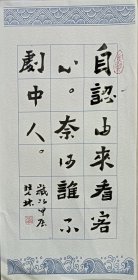 自認由來看客
心。奈何誰不
劇中人。
歲次甲辰
林